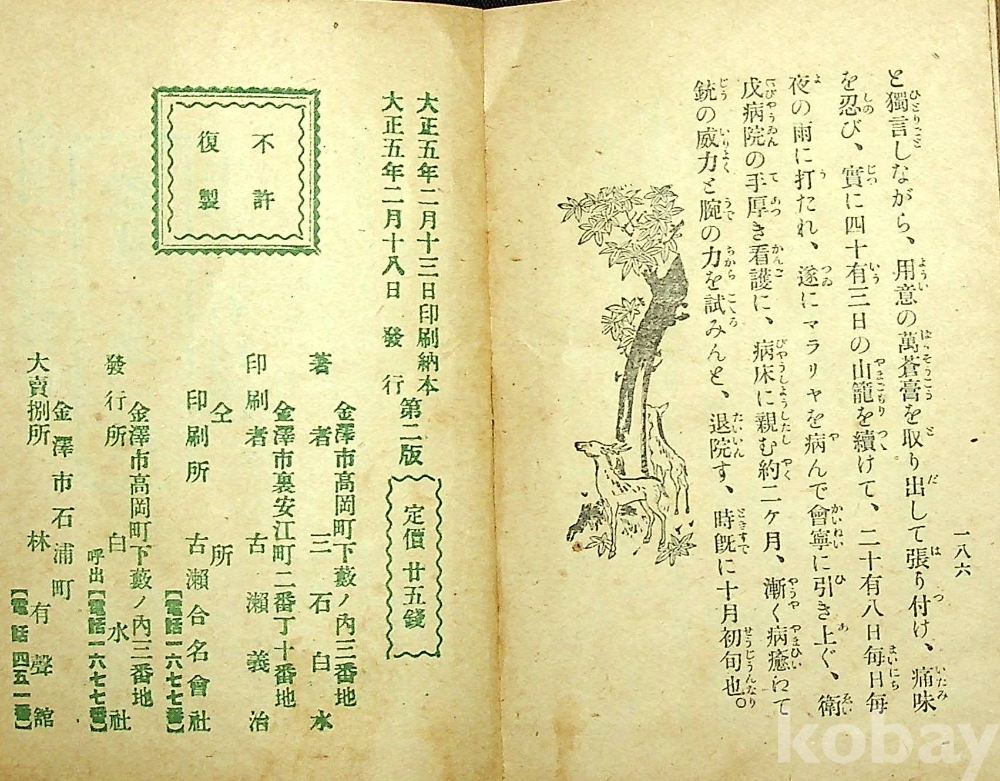 一八六
と獨言しながら、用意の萬蒼膏を取り出して張り付け、痛味
を忍び、實に四十有三日の山籠を續けて、二十有八日毎日毎
夜の雨に打たれ、遂にマラリヤを病んで會寧に引き上ぐ、衛
戍病院の手厚き看護に、病床に親む約二ヶ月、漸く病癒にて
銃の威力と腕の力を試みんと、退院す、時既に十月初旬也。
大正五年二月十三日印刷納本
大正五年二月十八日發行
第二版
定價廿五錢
不許
復製
金澤市高岡町下藪ノ內三番地
著者 三石白水
金澤市裏安江町二番丁十番地
印刷者 古瀬義治
仝所
印刷所 古瀬合名會社
【電話一六七七番】
金澤市高岡町下藪ノ內三番地
發行所 白水社
呼出【電話一六七七番】
金澤市石浦町
大賣捌所 林有聲館
【電話四五一番】
kobay